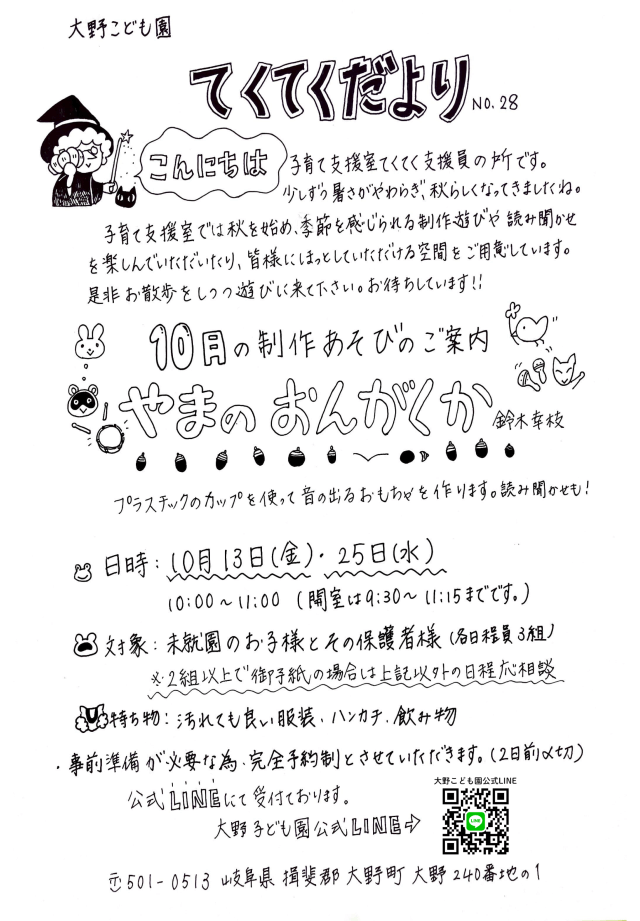 大野こども園
てくてくだより NO.28
こんにちは
子育て支援室てくてく支援員の所です。
少しずつ暑さがやわらぎ、秋らしくなってきましたね。
子育て支援室では秋を始め、季節を感じられる制作遊びや 読み聞かせ
を楽しんでいただいたり、皆様にほっとしていただける空間をご用意しています。
是非お散歩をしつつ遊びに来て下さい。お待ちしています!!
10月の制作あそびのご案内
やまのおんがくか 鈴木幸枝
プラスチックのカップを使って音の出るおもちゃを作ります。読み聞かせも!
日時: 10月13日(金)・25日(水)
10:00〜11:00 (開室は9:30〜11:15までです。)
対象: 未就園のお子様とその保護者様 (各日程員3組)
※2組以上で御予約の場合は上記以外の日程応相談
持ち物: 汚れても良い服装、ハンカチ、飲み物
・事前準備が必要な為、完全予約制とさせていただきます。(2日前〆切)
公式LINEにて受付ております。
大野こども園公式LINE
大野子ども園公式LINE⇨
LINE
〒501-0513 岐阜県 揖斐郡 大野町 大野 240番地の1